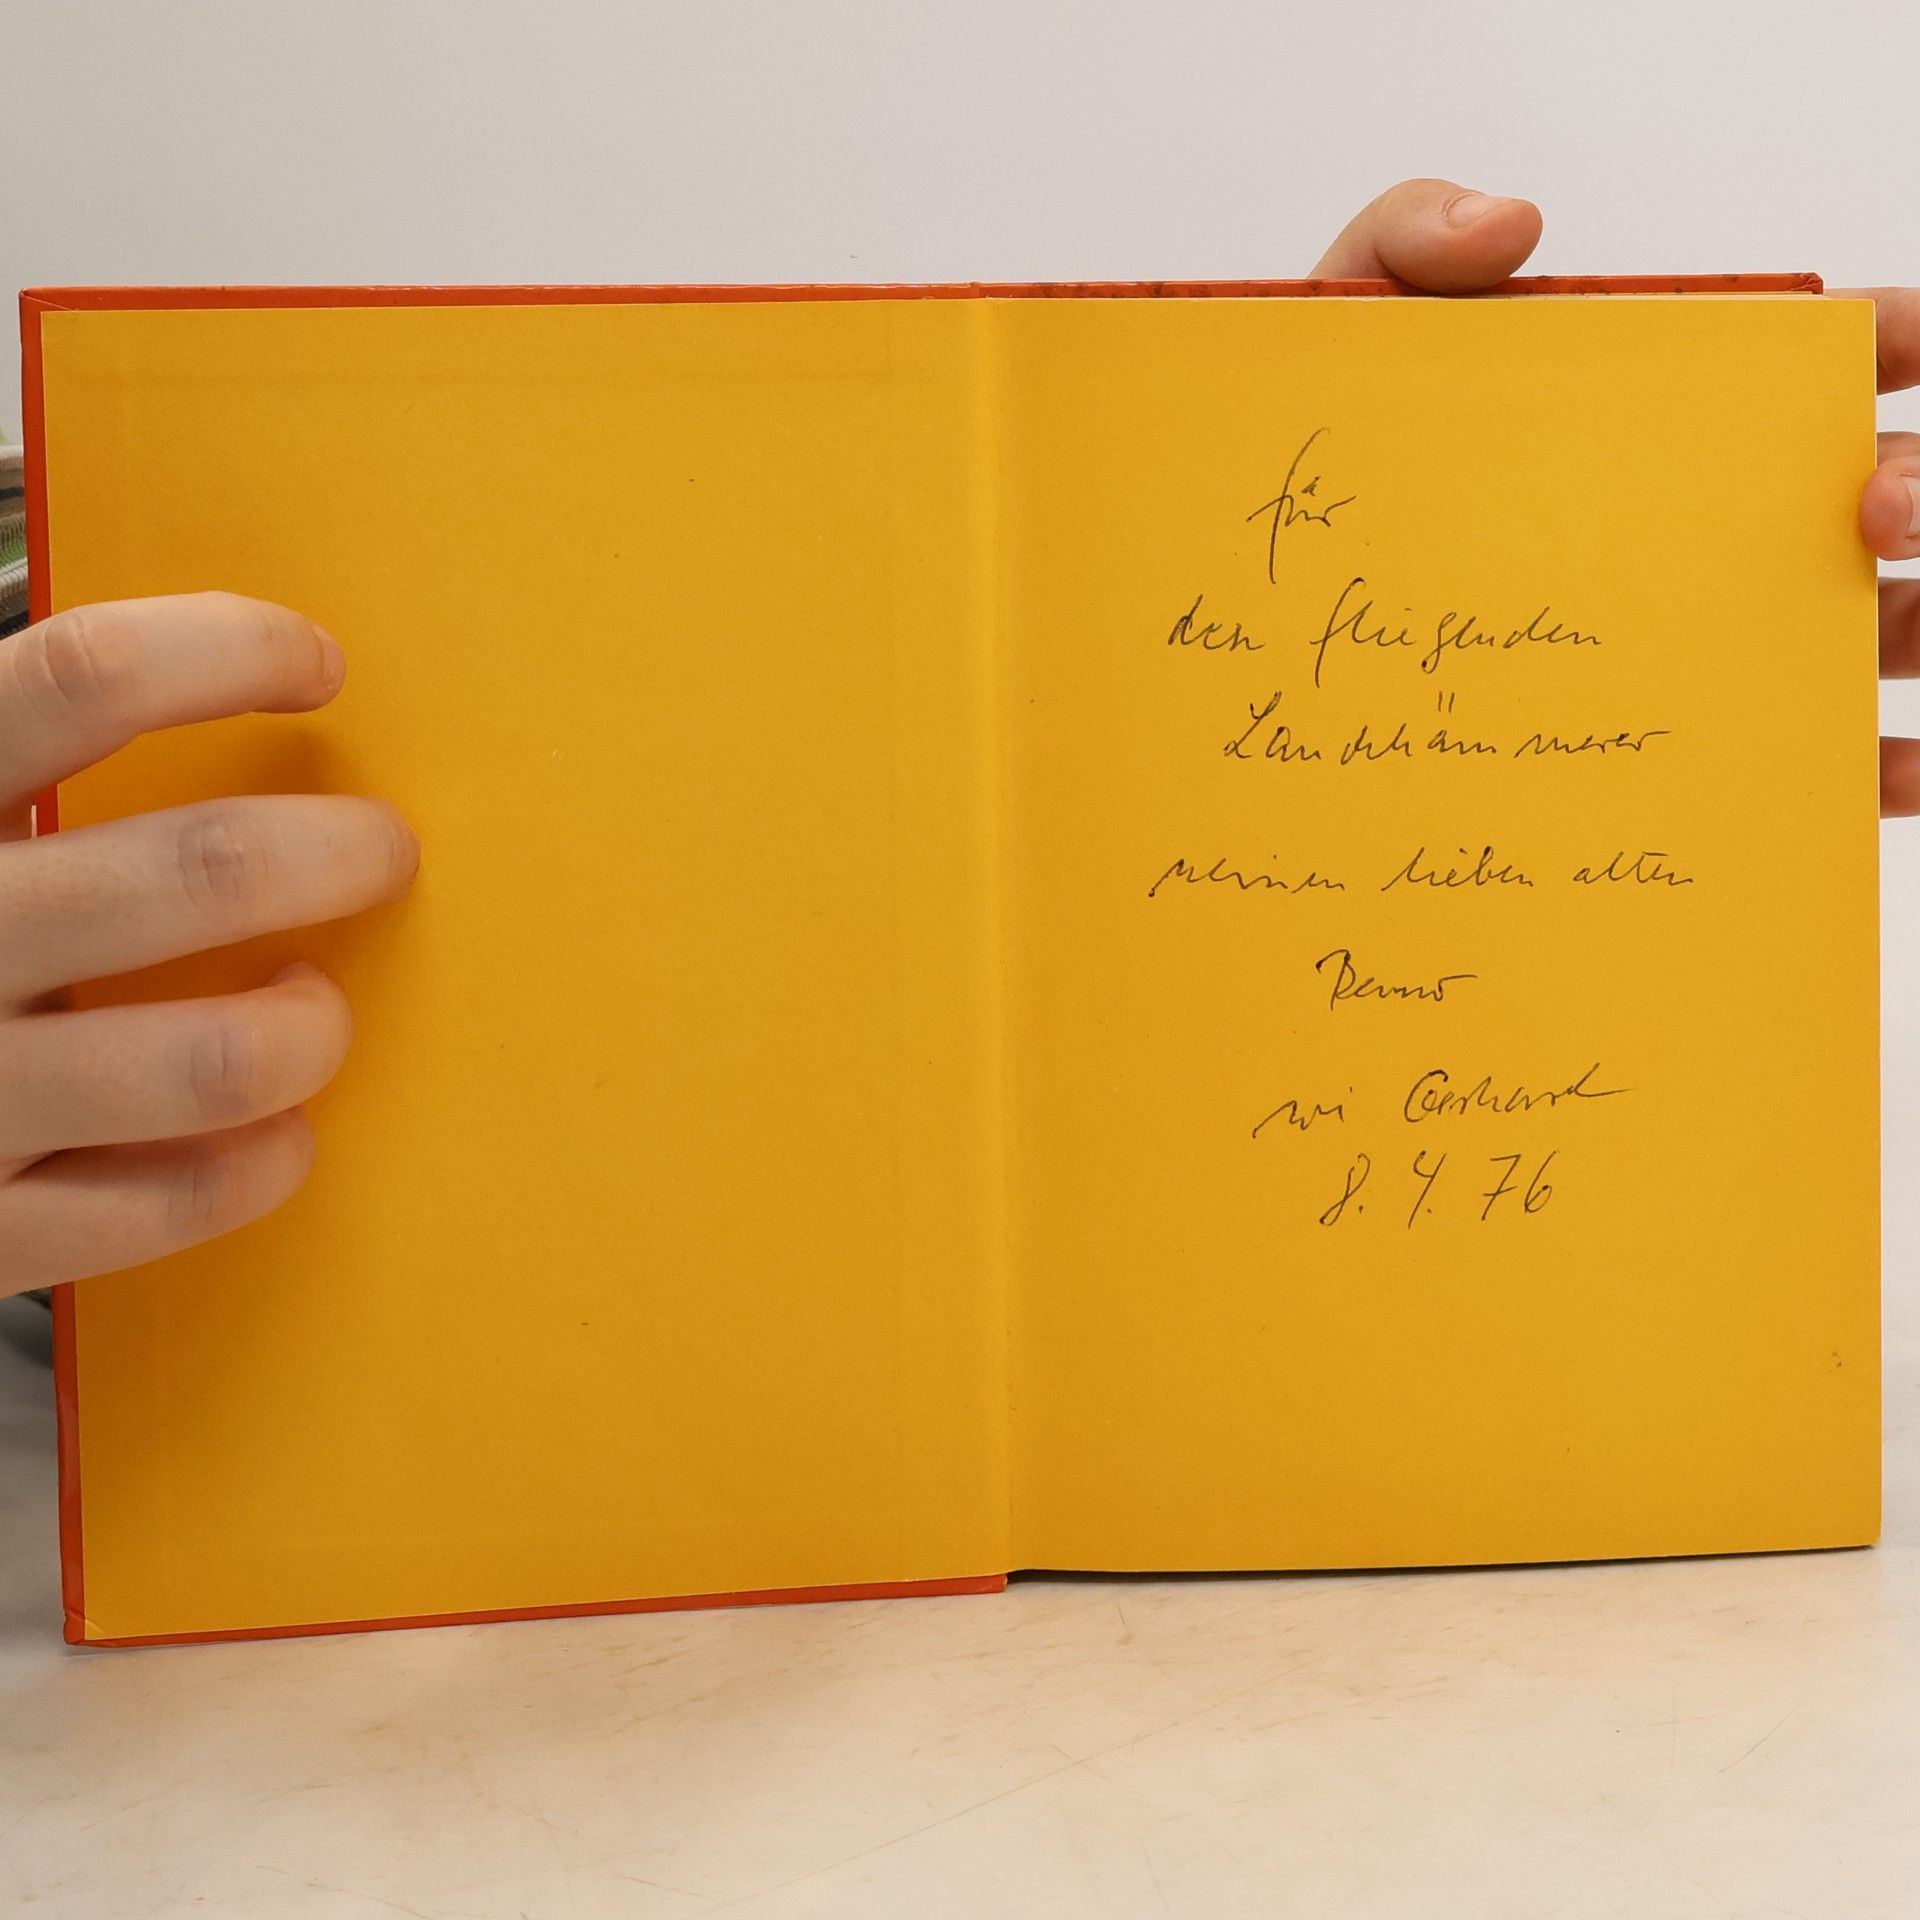 für
den fliegenden
Landkämmerer
meinen lieben alten
Benno
Gerhard
8. 4. 76